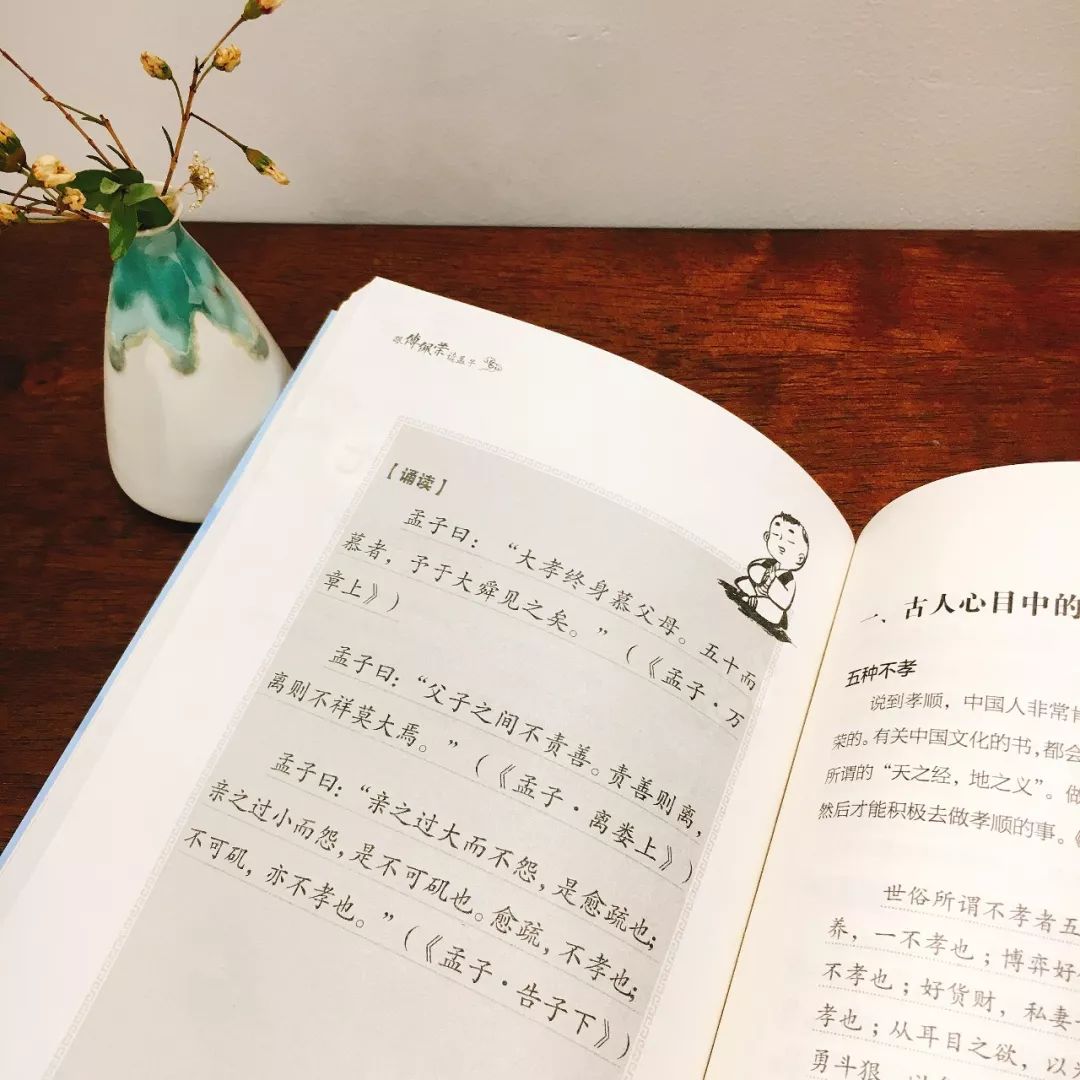 跟傅佩荣读孟子
【诵读】
孟子曰：“大孝终身慕父母。五十而
慕者，予于大舜见之矣。”（《孟子·万
章上》）
孟子曰：“父子之间不责善。责善则离，
离则不祥莫大焉。”（《孟子·离娄上》）
孟子曰：“亲之过大而不怨，是愈疏也；
亲之过小而怨，是不可矶也。愈疏，不孝也；
不可矶，亦不孝也。”（《孟子·告子下》）
一、古人心目中的
五种不孝
说到孝顺，中国人非常肯
荣的。有关中国文化的书，都会
所谓的“天之经，地之义”。做
然后才能积极去做孝顺的事。《
世俗所谓不孝者五
养，一不孝也；博弈好
不孝也；好货财，私妻子
孝也；从耳目之欲，以为
勇斗狠，以